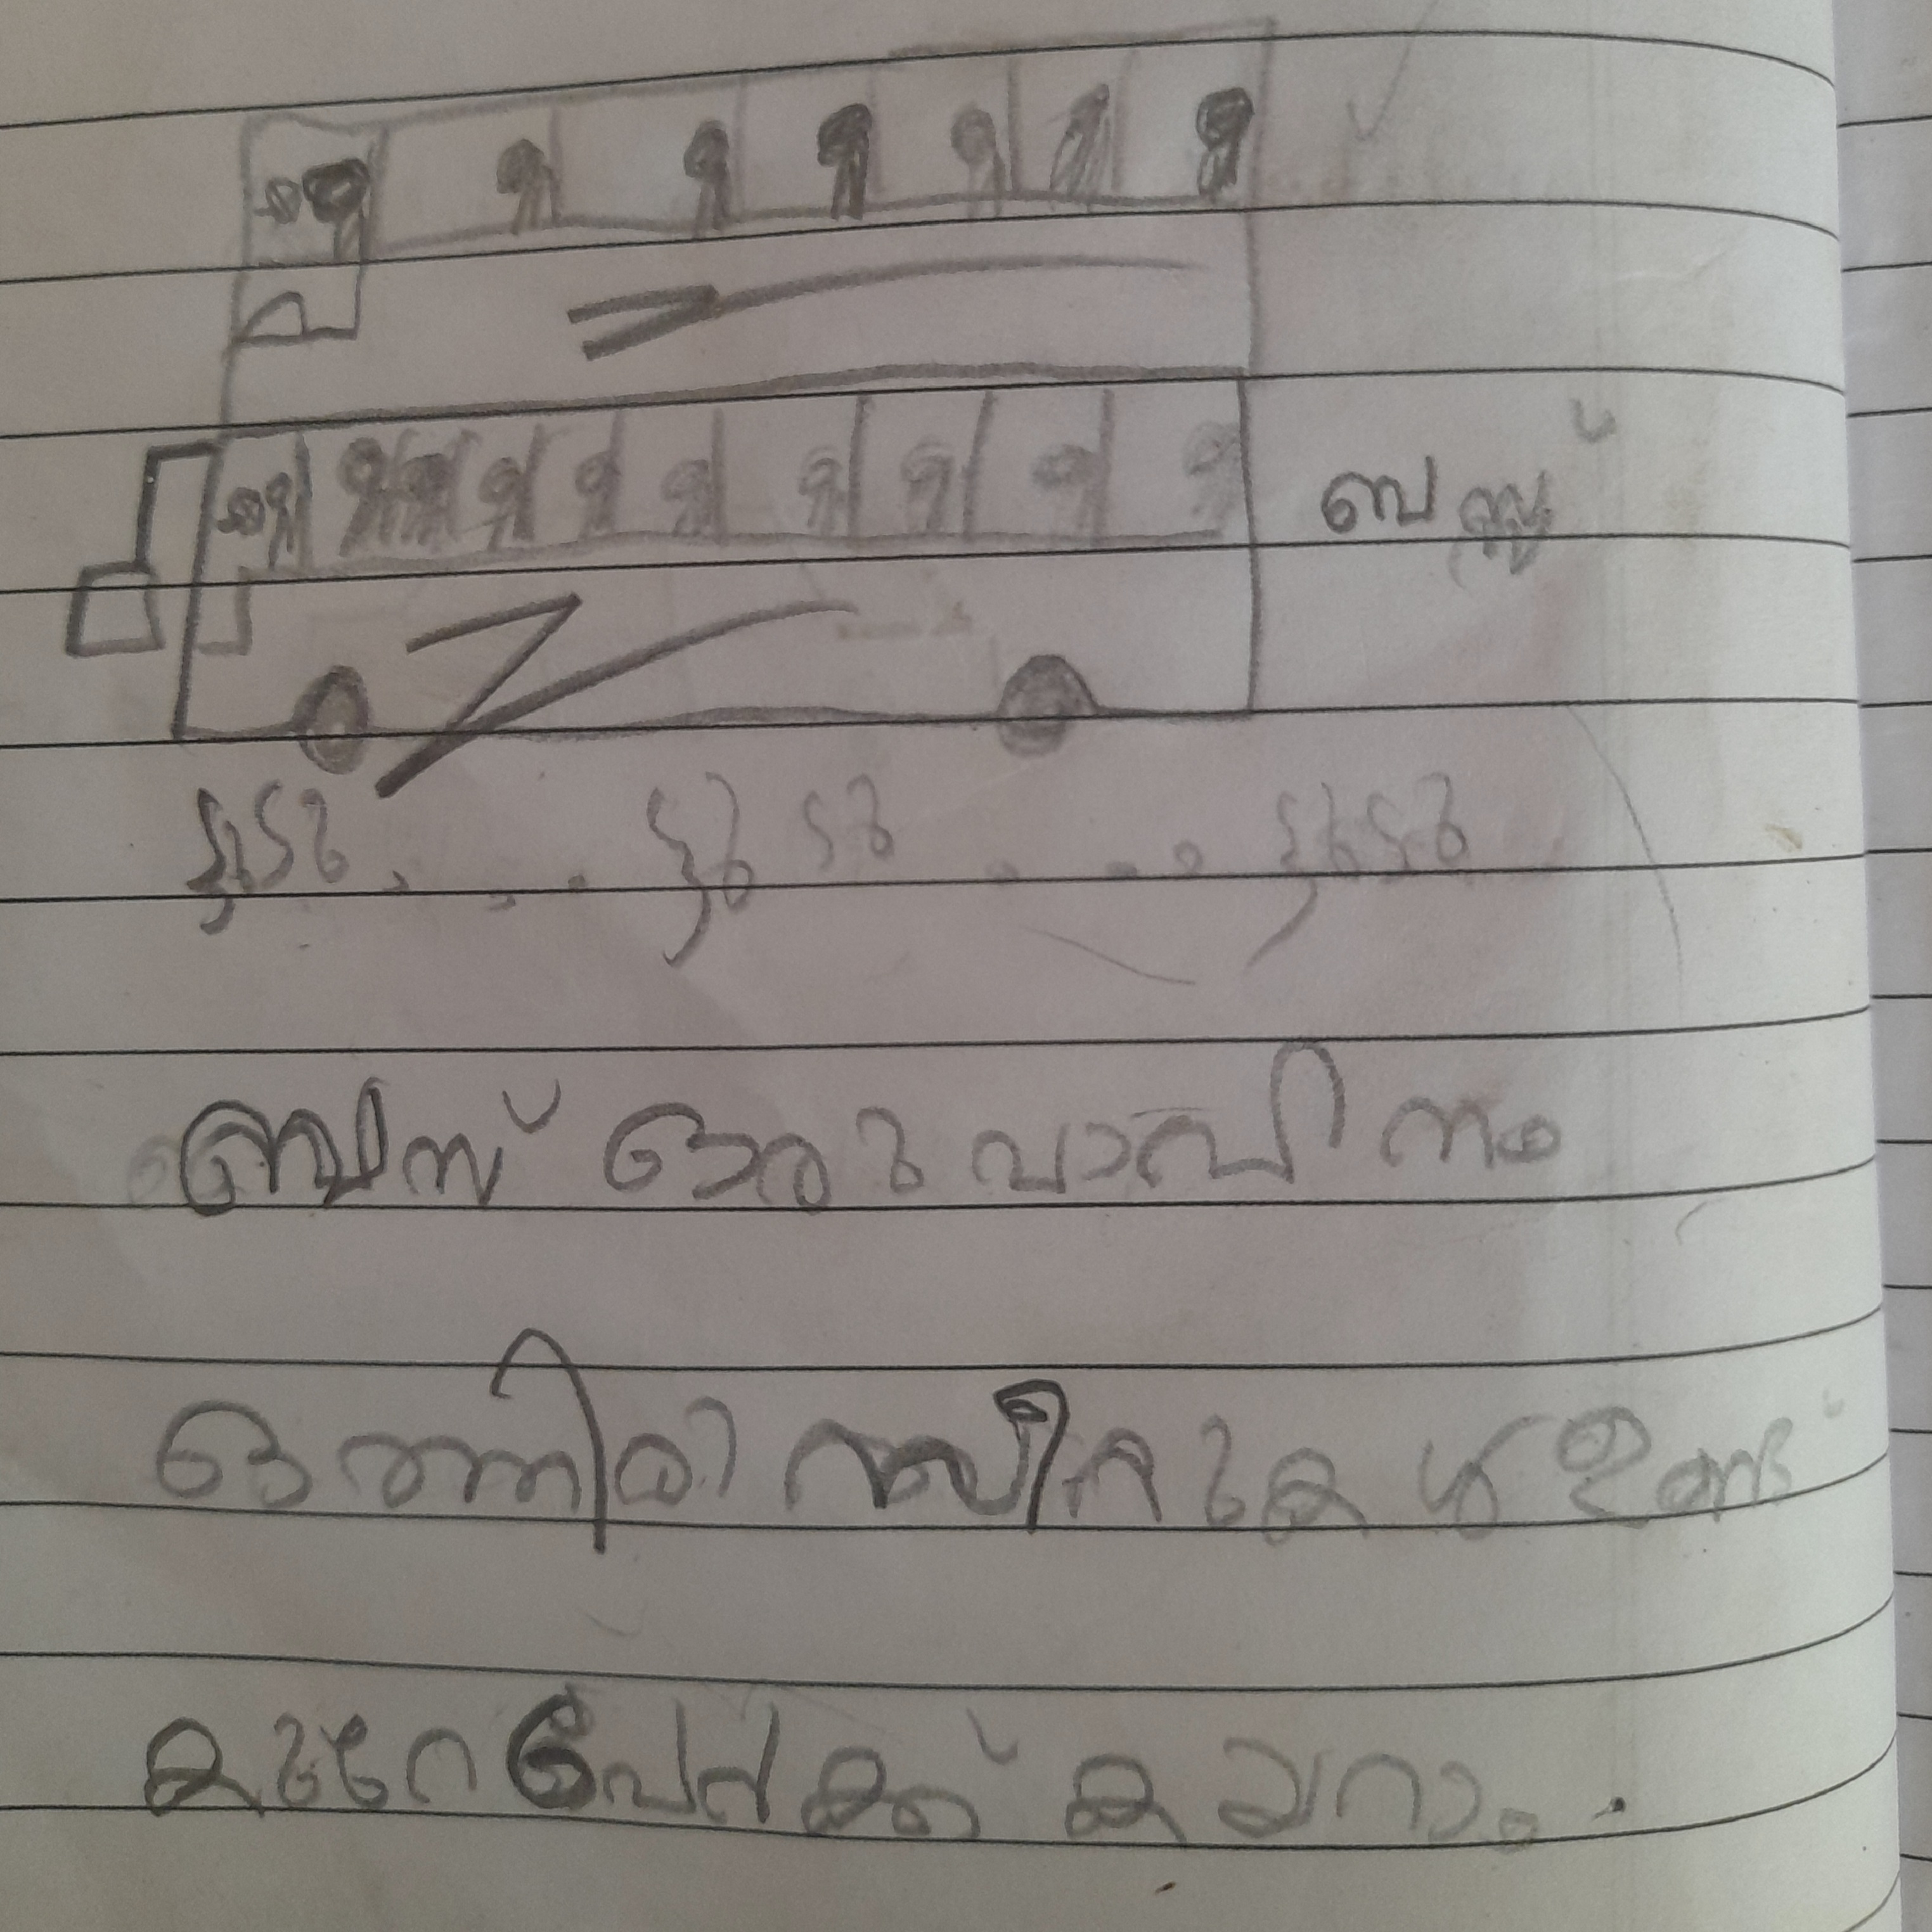 ബസ്സ്
ർുർു . . . ർുർു . . . ർുർു
ബസ് ഒരു വാഹനം
ഒത്തിരി സീറ്റുകൾ ഉണ്ട്
കുറേ പേർക്ക് കയറാം.